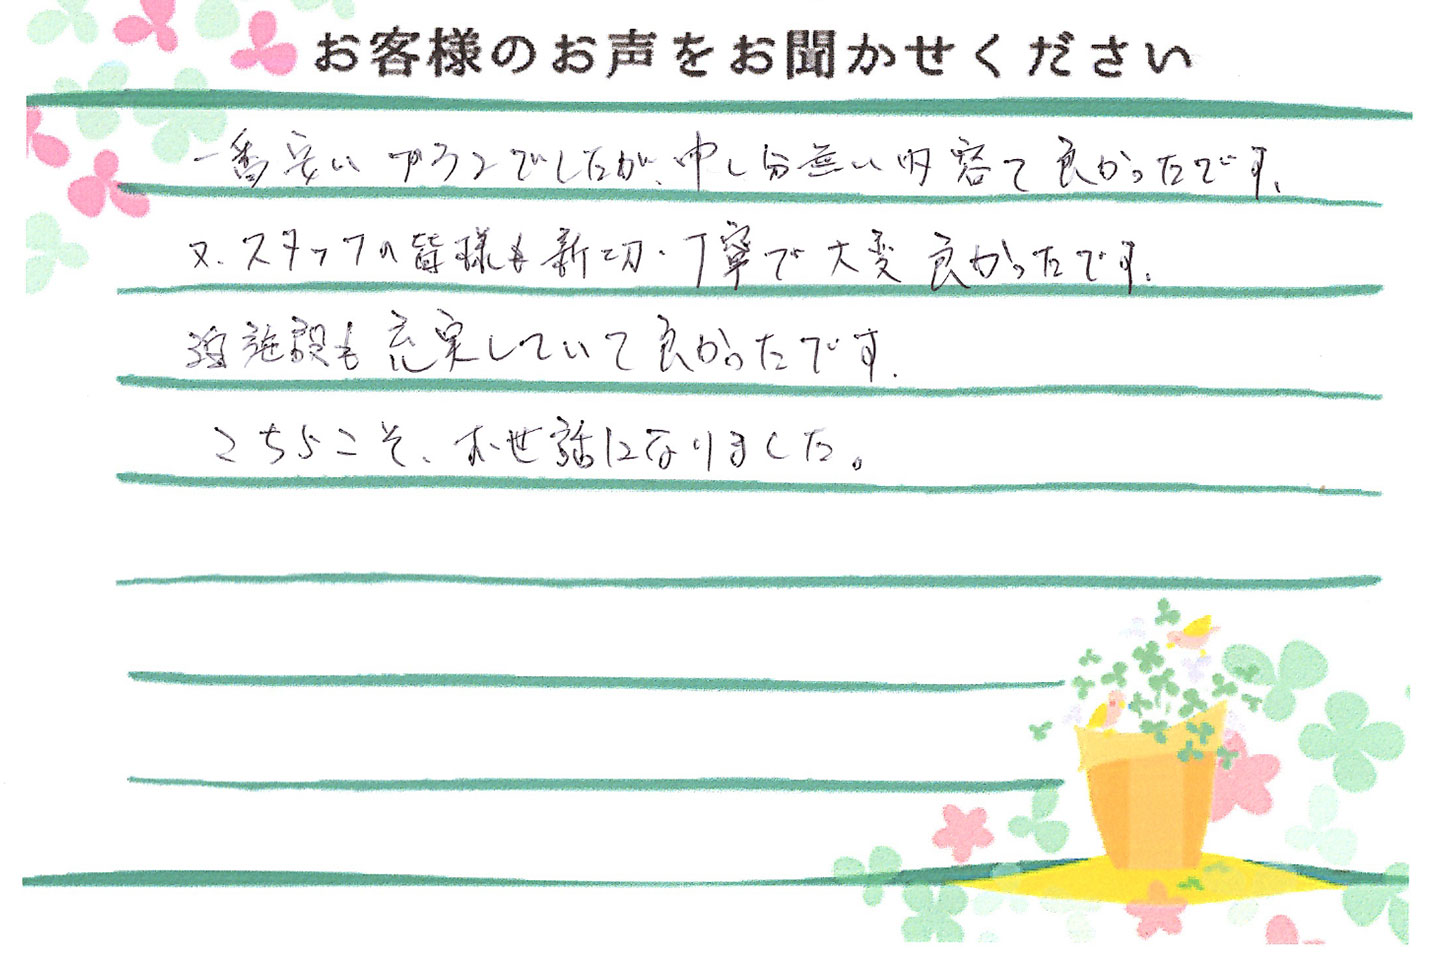 お客様のお声をお聞かせください
一番安いプランでしたが、申し分無い内容で良かったです。
又、スタッフの皆様も親切・丁寧で大変良かったです。
施設も充実していて良かったです。
こちらこそ、お世話になりました。